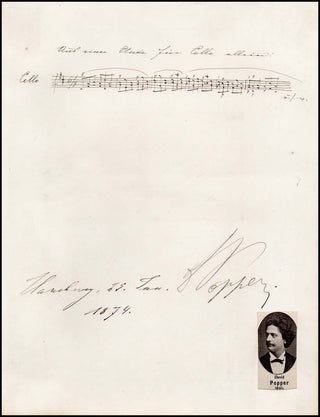 Aus einer Etude für Cello allein:
Cello
u.s.w.
Hamburg, 25. Jan. D Popper.
1874.
David
Popper